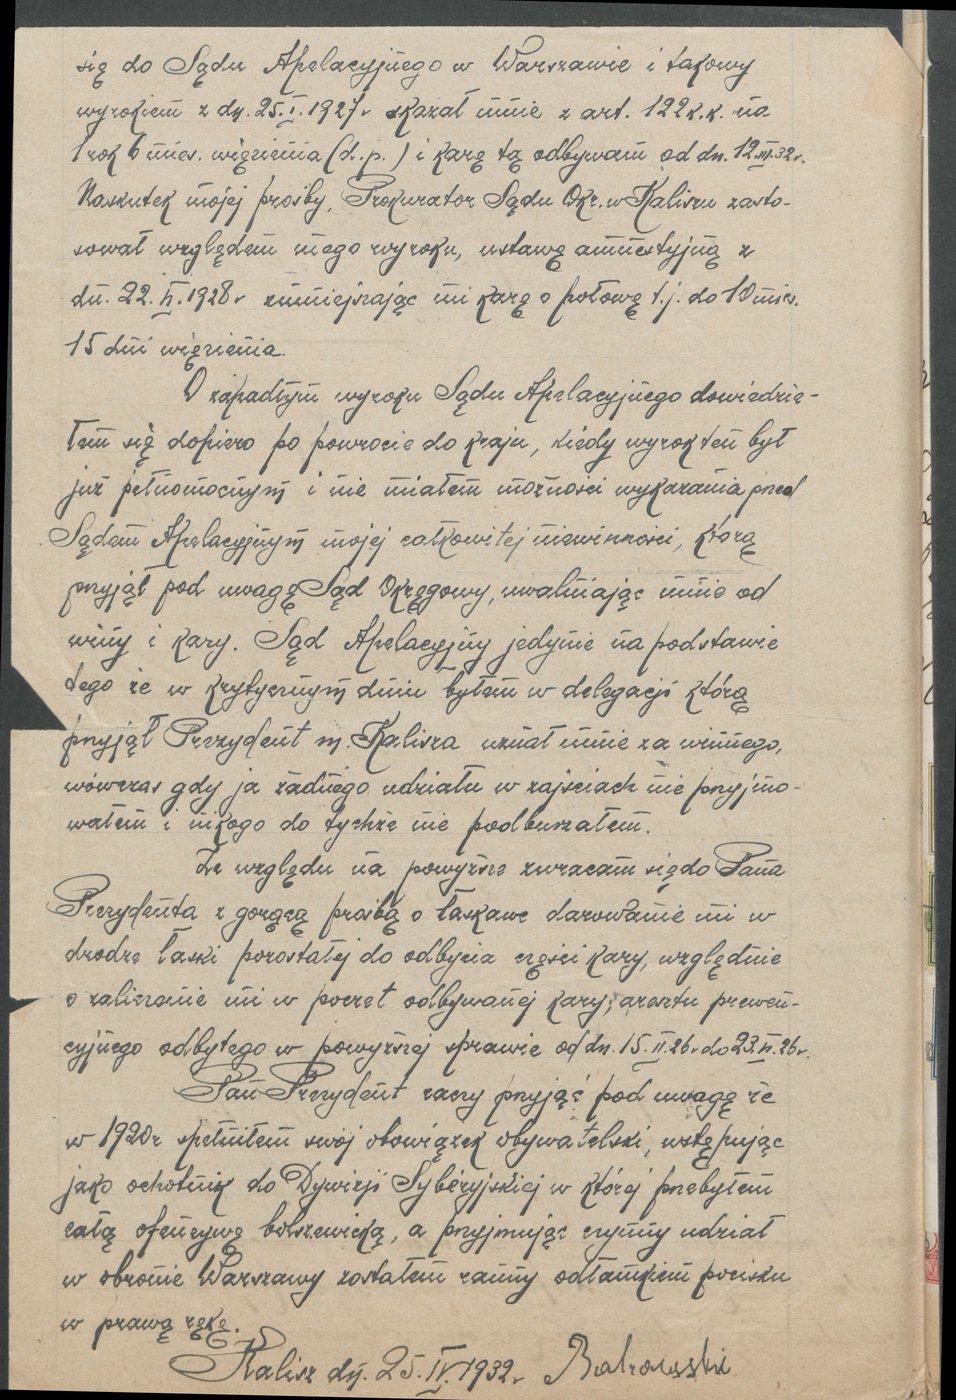 się do Sądu Apelacyjnego w Warszawie i takowy
wyrokiem z dn. 25.I.1927r skazał mnie z art. 122 k.k. na
1 rok 6 mies. więzienia (d.p.) i karę tą odbywam od dn. 12.III.32r.
Naskutek mojej prośby, Prokurator Sądu Okr. w Kaliszu zasto-
sował względem niego wyroku, ustawę amnestyjną z
dn. 22.VI.1928r zmniejszając mi karę o połowę t.j. do 10 mies.
15 dni więzienia.
O zapadłym wyroku Sądu Apelacyjnego dowiedzia-
łem się dopiero po powrocie do kraju, kiedy wyrok ten był
już pełnomocnym i nie miałem możności wykazania przed
Sądem Apelacyjnym mojej całkowitej niewinności, którą
przyjął pod uwagę Sąd Okręgowy, uwalniając mnie od
winy i kary. Sąd Apelacyjny jedynie na podstawie
tego że w krytycznym dniu byłem w delegacji którą
przyjął Prezydent m. Kalisza uznał mnie za winnego,
wówczas gdy ja żadnego udziału w zajściach nie przyjmo-
wałem i nikogo do tychże nie podburzałem.
Ze względu na powyższe zwracam się do Pana
Prezydenta z gorącą prośbą o łaskawe darowanie mi w
drodze łaski pozostałej do odbycia części kary, względnie
o zaliczenie mi w poczet odbywanej kary, aresztu prewen-
cyjnego odbytego w powyższej sprawie od dn. 15.II.26r do 23.VI.26r.
Pan Prezydent raczy przyjąć pod uwagę że
w 1920r spełniłem swój obowiązek obywatelski, wstępując
jako ochotnik do Dywizji Syberyjskiej w której przebyłem
całą ofenzywę bolszewicką, a przyjmując czynny udział
w obronie Warszawy zostałem ranny odłamkiem pocisku
w prawą rękę.
Kalisz dn. 25.IV.1932r